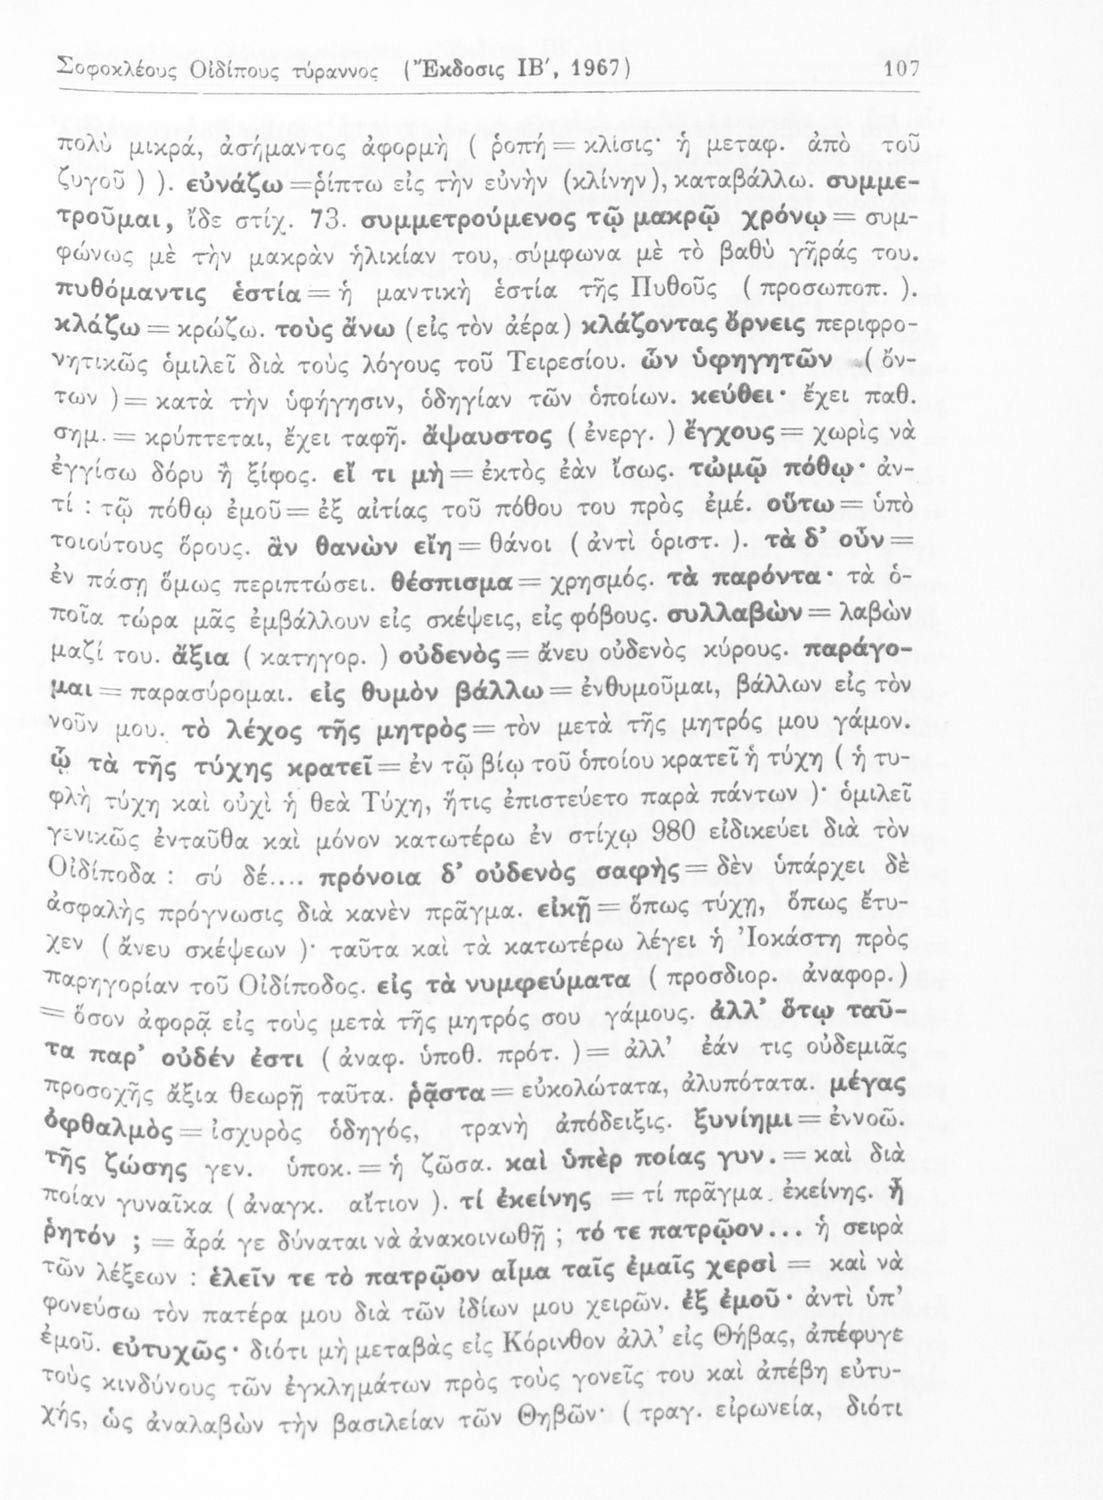 Σοφοκλέους Οἰδίπους τύραννος (Ἔκδοσις ΙΒʹ, 1967) 107
πολὺ μικρά, ἀσήμαντος ἀφορμὴ ( ῥοπή = κλίσις· ἡ μεταφ. ἀπὸ τοῦ
ζυγοῦ ) ). εὐνάζω =ρίπτω εἰς τὴν εὐνὴν (κλίνην), καταβάλλω. συμμε-
τροῦμαι, ἴδε στίχ. 73. συμμετρούμενος τῷ μακρῷ χρόνῳ = συμ-
φώνως μὲ τὴν μακρὰν ἡλικίαν του, σύμφωνα μὲ τὸ βαθὺ γῆράς του.
πυθόμαντις ἑστία = ἡ μαντικὴ ἑστία τῆς Πυθοῦς ( προσωποπ. ).
κλάζω = κρώζω. τοὺς ἄνω (εἰς τὸν ἀέρα) κλάζοντας ὄρνεις περιφρο-
νητικῶς ὁμιλεῖ διὰ τοὺς λόγους τοῦ Τειρεσίου. ὧν ὑφηγητῶν ( ὄν-
των ) = κατὰ τὴν ὑφήγησιν, ὁδηγίαν τῶν ὁποίων. κεύθει· ἔχει παθ.
σημ. = κρύπτεται, ἔχει ταφῆ. ἄψαυστος ( ἐνεργ. ) ἔγχους = χωρὶς νὰ
ἐγγίσω δόρυ ἢ ξίφος. εἴ τι μὴ = ἐκτὸς ἐὰν ἴσως. τὠμῷ πόθῳ· ἀν-
τί : τῷ πόθῳ ἐμοῦ = ἐξ αἰτίας τοῦ πόθου του πρὸς ἐμέ. οὕτω = ὑπὸ
τοιούτους ὅρους. ἂν θανὼν εἴη = θάνοι ( ἀντὶ ὁριστ. ). τὰ δ' οὖν =
ἐν πάσῃ ὅμως περιπτώσει. θέσπισμα = χρησμός. τὰ παρόντα· τὰ ὁ-
ποῖα τώρα μᾶς ἐμβάλλουν εἰς σκέψεις, εἰς φόβους. συλλαβὼν = λαβὼν
μαζί του. ἄξια ( κατηγορ. ) οὐδενὸς = ἄνευ οὐδενὸς κύρους. παράγο-
μαι = παρασύρομαι. εἰς θυμὸν βάλλω = ἐνθυμοῦμαι, βάλλων εἰς τὸν
νοῦν μου. τὸ λέχος τῆς μητρὸς = τὸν μετὰ τῆς μητρός μου γάμον.
ᾧ τὰ τῆς τύχης κρατεῖ = ἐν τῷ βίῳ τοῦ ὁποίου κρατεῖ ἡ τύχη ( ἡ τυ-
φλὴ τύχη καὶ οὐχὶ ἡ θεὰ Τύχη, ἥτις ἐπιστεύετο παρὰ πάντων )· ὁμιλεῖ
γενικῶς ἐνταῦθα καὶ μόνον κατωτέρω ἐν στίχῳ 980 εἰδικεύει διὰ τὸν
Οἰδίποδα : σύ δέ.... πρόνοια δ' οὐδενὸς σαφὴς = δὲν ὑπάρχει δὲ
ἀσφαλὴς πρόγνωσις διὰ κανὲν πρᾶγμα. εἰκῇ = ὅπως τύχῃ, ὅπως ἔτυ-
χεν ( ἄνευ σκέψεων )· ταῦτα καὶ τὰ κατωτέρω λέγει ἡ Ἰοκάστη πρὸς
παρηγορίαν τοῦ Οἰδίποδος. εἰς τὰ νυμφεύματα ( προσδιορ. ἀναφορ. )
= ὅσον ἀφορᾷ εἰς τοὺς μετὰ τῆς μητρός σου γάμους. ἀλλ' ὅτῳ ταῦ-
τα παρ' οὐδέν ἐστι ( ἀναφ. ὑποθ. πρότ. ) = ἀλλ' ἐάν τις οὐδεμιᾶς
προσοχῆς ἄξια θεωρῇ ταῦτα. ῥᾷστα = εὐκολώτατα, ἀλυπότατα. μέγας
ὀφθαλμὸς = ἰσχυρὸς ὁδηγός, τρανὴ ἀπόδειξις. ξυνίημι = ἐννοῶ.
τῆς ζώσης γεν. ὑποκ. = ἡ ζῶσα. καὶ ὑπὲρ ποίας γυν. = καὶ διὰ
ποίαν γυναῖκα ( ἀναγκ. αἴτιον ). τί ἐκείνης = τί πρᾶγμα ἐκείνης. ἦ
ῥητόν ; = ἆρά γε δύναται νὰ ἀνακοινωθῇ ; τό τε πατρῷον... ἡ σειρὰ
τῶν λέξεων : ἑλεῖν τε τὸ πατρῷον αἷμα ταῖς ἐμαῖς χερσὶ = καὶ νὰ
φονεύσω τὸν πατέρα μου διὰ τῶν ἰδίων μου χειρῶν. ἐξ ἐμοῦ· ἀντὶ ὑπ'
ἐμοῦ. εὐτυχῶς· διότι μὴ μεταβὰς εἰς Κόρινθον ἀλλ' εἰς Θήβας, ἀπέφυγε
τοὺς κινδύνους τῶν ἐγκλημάτων πρὸς τοὺς γονεῖς του καὶ ἀπέβη εὐτυ-
χής, ὡς ἀναλαβὼν τὴν βασιλείαν τῶν Θηβῶν· ( τραγ. εἰρωνεία, διότι